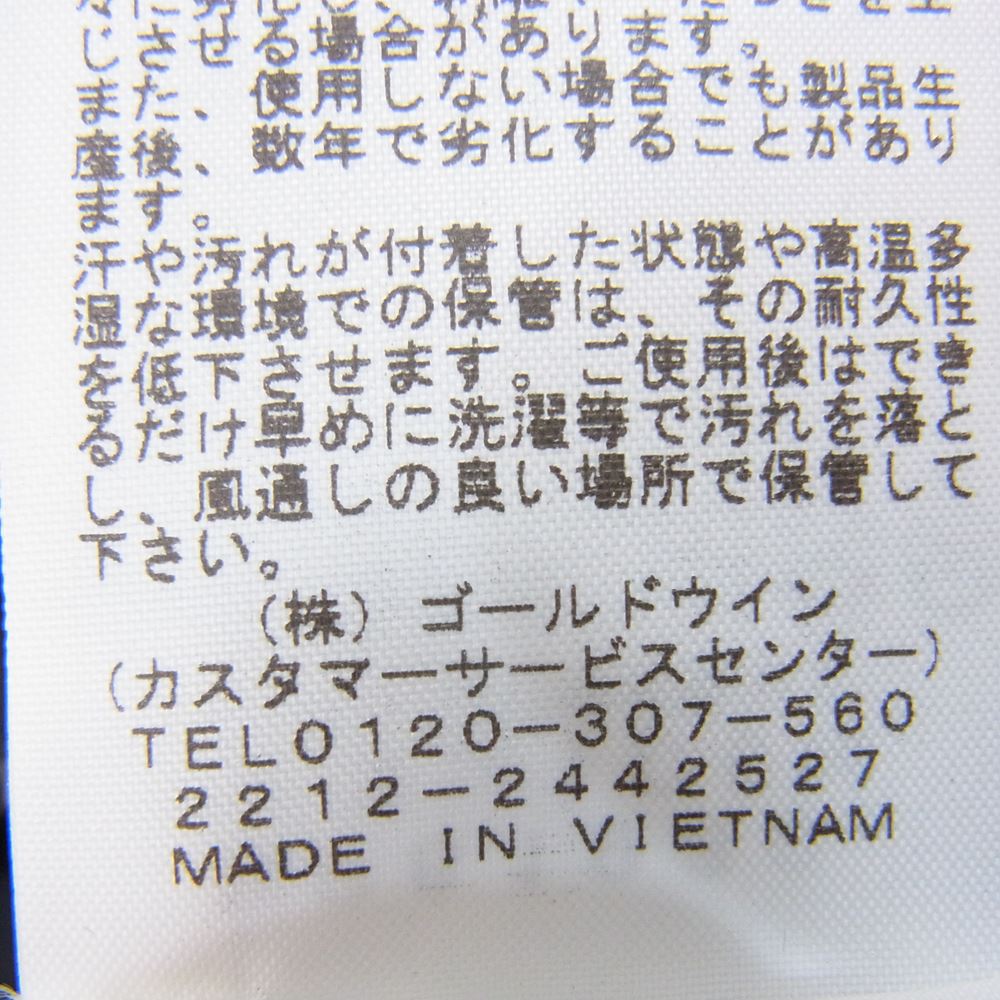 じませ、る場合があります。
また、使用しない場合でも製品生
産後、数年で劣化することがあり
ます。
汗や汚れが付着した状態や高温多
湿な環境での保管は、その耐久性
を低下させます。ご使用後はでき
るだけ早めに洗濯等で汚れを落と
し、風通しの良い場所で保管して
下さい。
(株) ゴールドウイン
(カスタマーサービスセンター)
TEL0120-307-560
2212-2442527
MADE IN VIETNAM